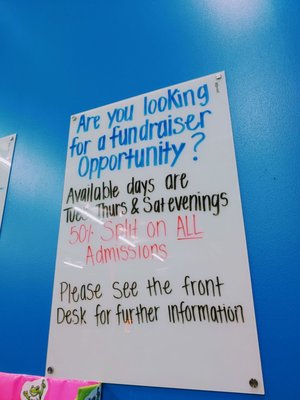 Are you looking
for a fundraiser
Opportunity?
Available days are
Tues, Thurs & Sat evenings
50% Split on ALL
Admissions
Please see the front
Desk for further information